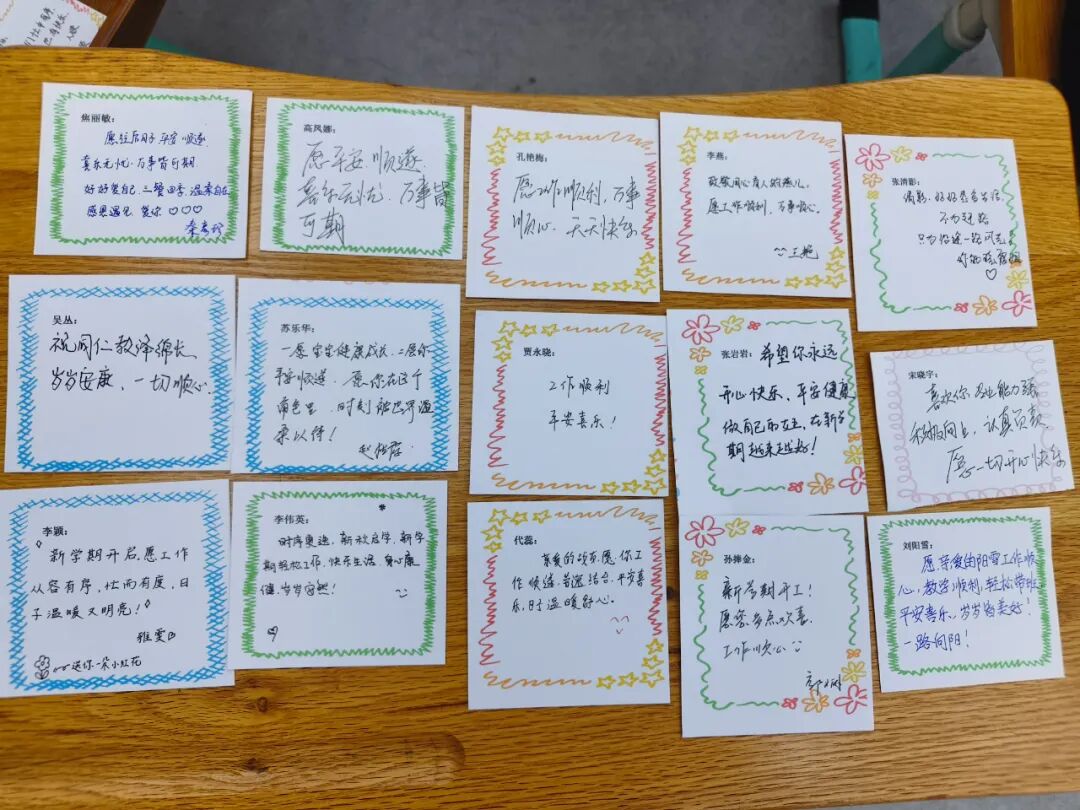 焦丽敏：
愿往后日子 平安 顺遂
喜乐无忧，万事皆可期
好好爱自己，三餐四季，温柔自在
感恩遇见 爱你♡♡♡
高凤娜：
愿平安 顺遂
喜乐无忧，万事皆
可期
孔艳梅：
愿工作顺利，万事
顺心，天天快乐
李燕：
致敬同心育人的燕儿，
愿工作顺利，万事顺心。
王艳
张清影：
清影：好好
不为
只为 一路风光
♡
吴丛：
祝同仁教泽绵长
岁岁安康，一切顺心。
苏乐华：
一愿宝宝健康成长，二愿你
平安顺遂，愿你在这个
角色里，时刻被世界温
柔以待！
贾永晓：
工作顺利
平安喜乐！
张岩岩：希望你永远
开心快乐、平安健康
做自己的女王，在新学
期越来越好！
宋晓宇：
喜欢你 专业能力强
积极向上，认真负责
愿一切开心快乐
李颖：
新学期开启，愿工作
从容有序，忙而有度，日
子温暖又明亮！
雅雯
送你一朵小红花
李伟英：
时序更迭，新秋启学，新学
期轻松工作，快乐生活，身心康
健，岁岁安然！
代蕊：
亲爱的 愿你工
作顺遂 平安喜
乐，日子温暖舒心。
孙捧金：
新学期开工！
愿您多点欢喜，
工作顺心
刘阳雪：
愿亲爱的阳雪工作顺
心，教学顺利，轻松带班
平安喜乐，岁岁皆美好！
一路向阳！